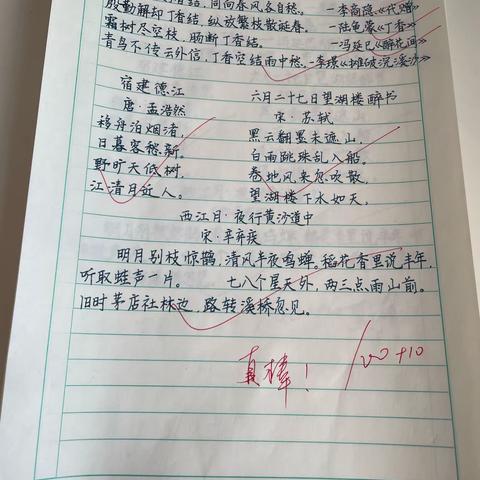 同向春风各自愁。 —李商隐《代赠》
殷勤解却丁香结，纵放繁枝散诞春。 —陆龟蒙《丁香》
霜树尽空枝，肠断丁香结。 —冯延巳《醉花间》
青鸟不传云外信，丁香空结雨中愁。—李璟《摊破浣溪沙》
宿建德江 六月二十七日望湖楼醉书
唐·孟浩然 宋·苏轼
移舟泊烟渚， 黑云翻墨未遮山，
日暮客愁新。 白雨跳珠乱入船。
野旷天低树， 卷地风来忽吹散，
江清月近人。 望湖楼下水如天。
西江月·夜行黄沙道中
宋·辛弃疾
明月别枝惊鹊，清风半夜鸣蝉。稻花香里说丰年，
听取蛙声一片。 七八个星天外，两三点雨山前。
旧时茅店社林边，路转溪桥忽见。
真棒！ 100+10